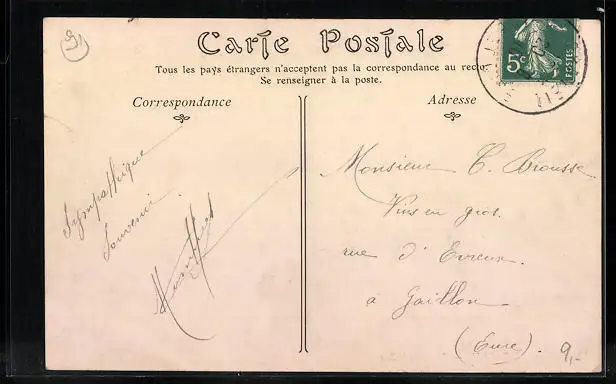 Carte Postale
Tous les pays étrangers n'acceptent pas la correspondance au recto.
Se renseigner à la poste.
Correspondance
Adresse
5c
POSTES
Sympathique
Souvenir
Monsieur C. Brousse
Vins en gros.
rue d'Evreux.
à Gaillon
(Eure)
9,-